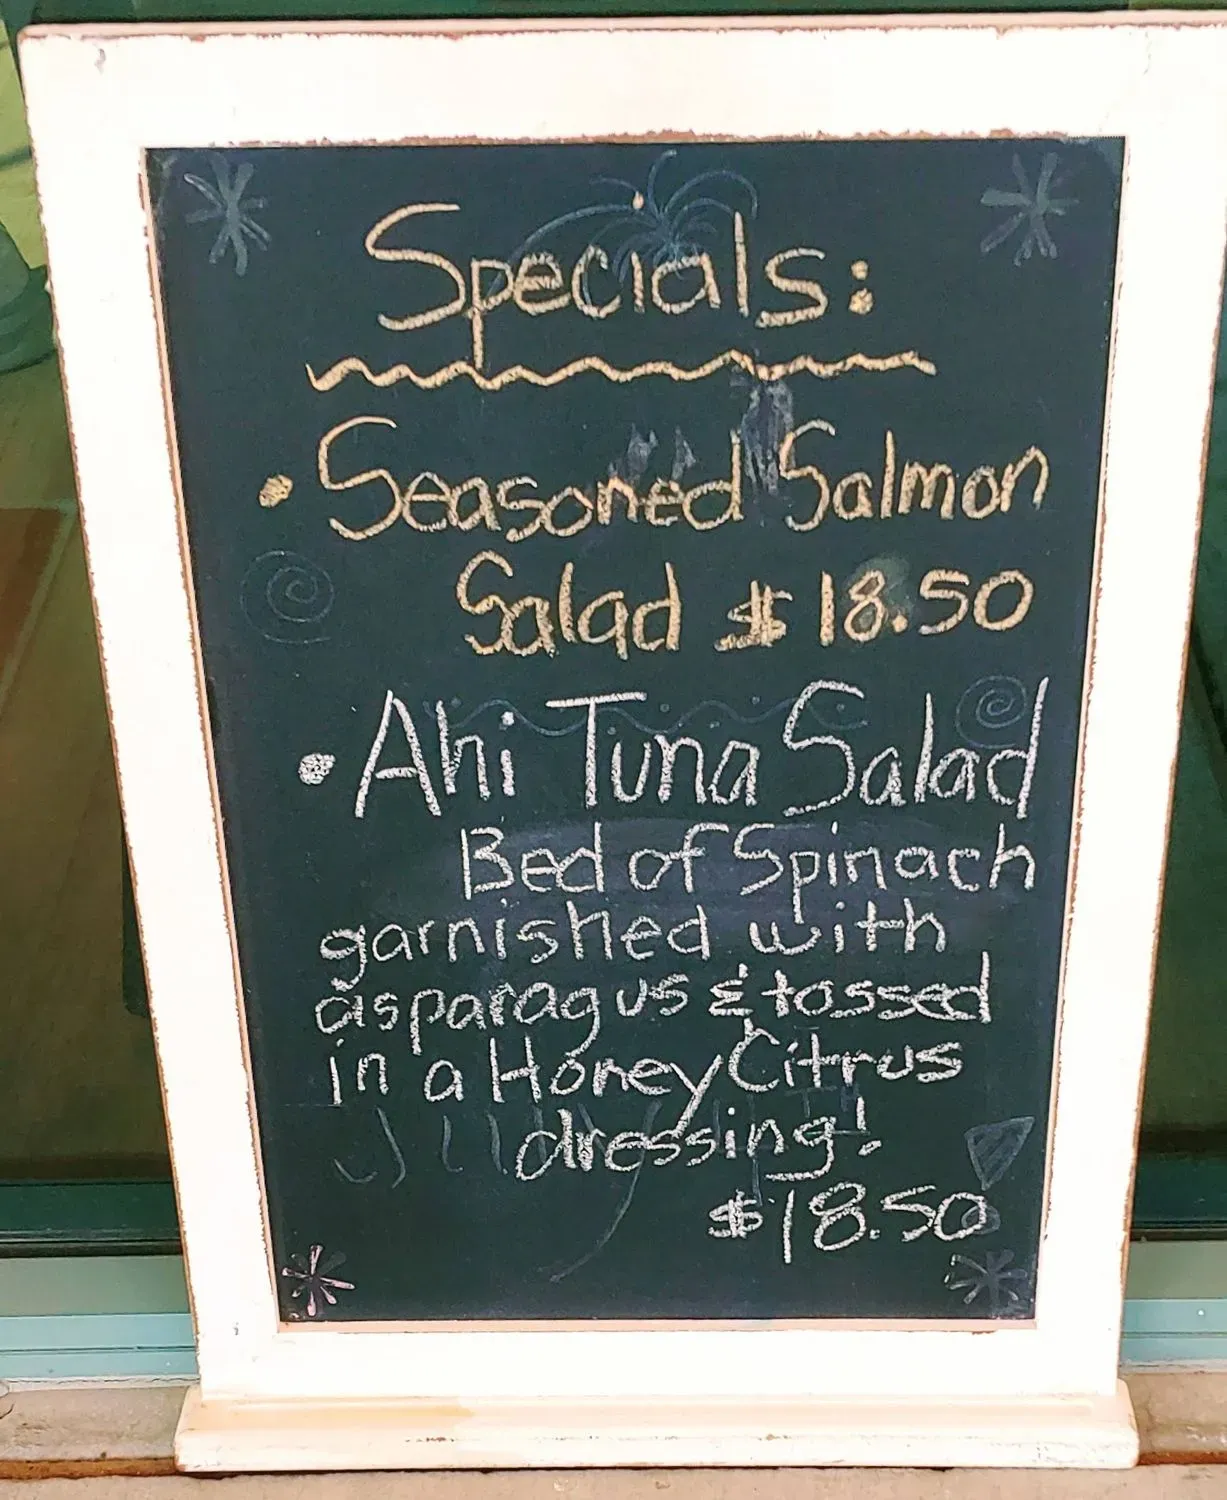 Specials:
• Seasoned Salmon
Salad $18.50
• Ahi Tuna Salad
Bed of Spinach
garnished with
asparagus & tossed
in a Honey Citrus
dressing!
$18.50